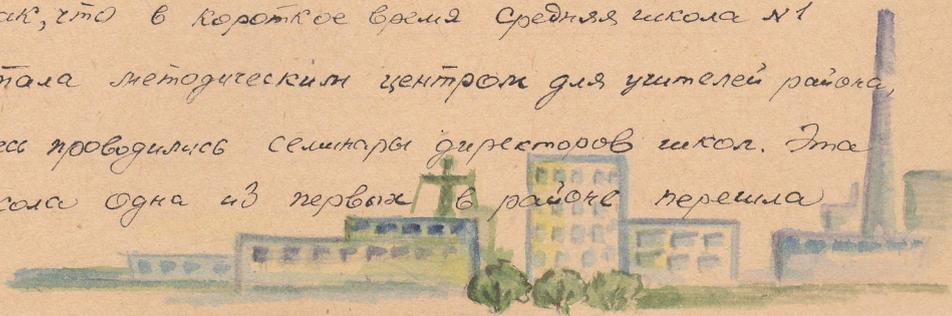 ак, что в короткое время средняя школа №1
тала методическим центром для учителей района,
сь проводились семинары директоров школ. Эта
кола одна из первых в районе перешла